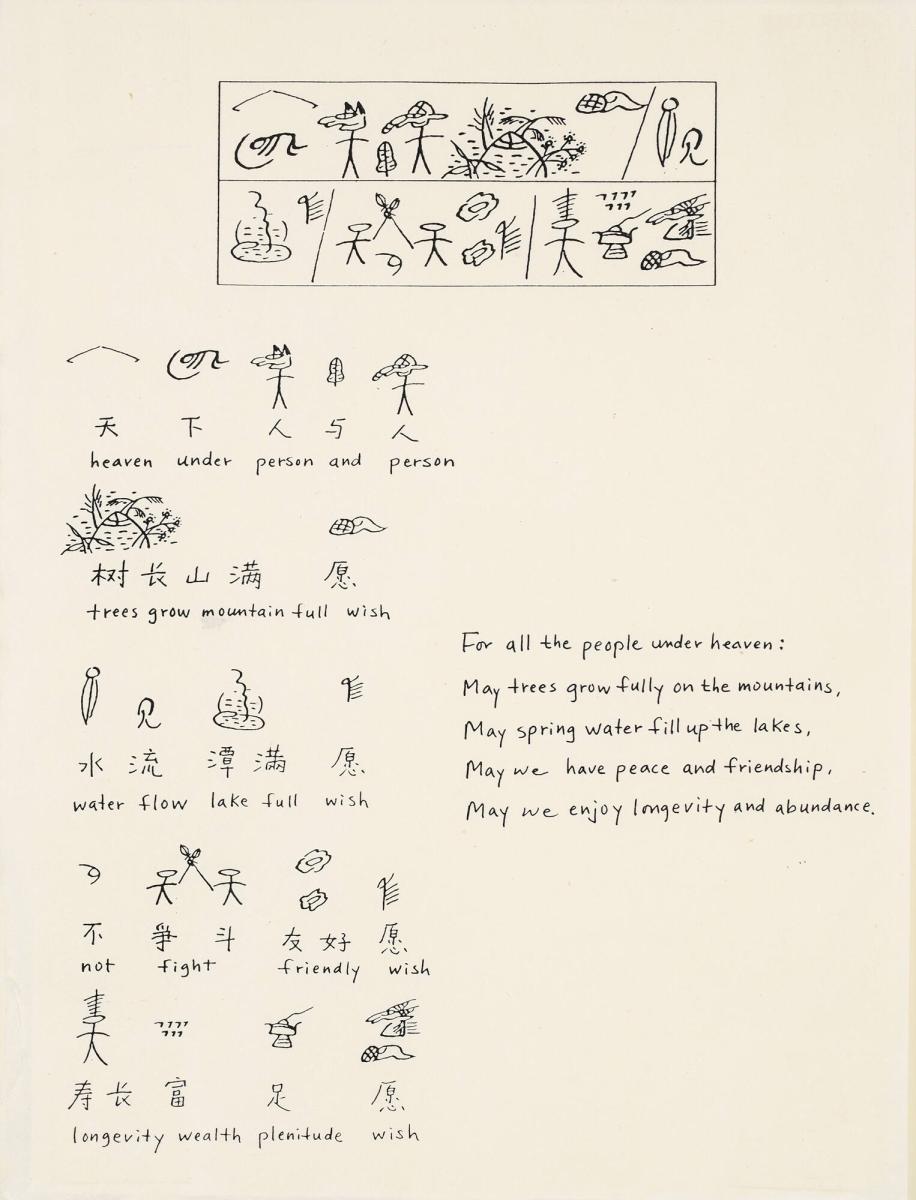 天 下 人 与 人
heaven under person and person
树 长 山 满 愿
trees grow mountain full wish
水 流 潭 满 愿
water flow lake full wish
不 爭 斗 友 好 愿
not fight friendly wish
寿 长 富 足 愿
longevity wealth plenitude wish
For all the people under heaven:
May trees grow fully on the mountains,
May spring water fill up the lakes,
May we have peace and friendship,
May we enjoy longevity and abundance.